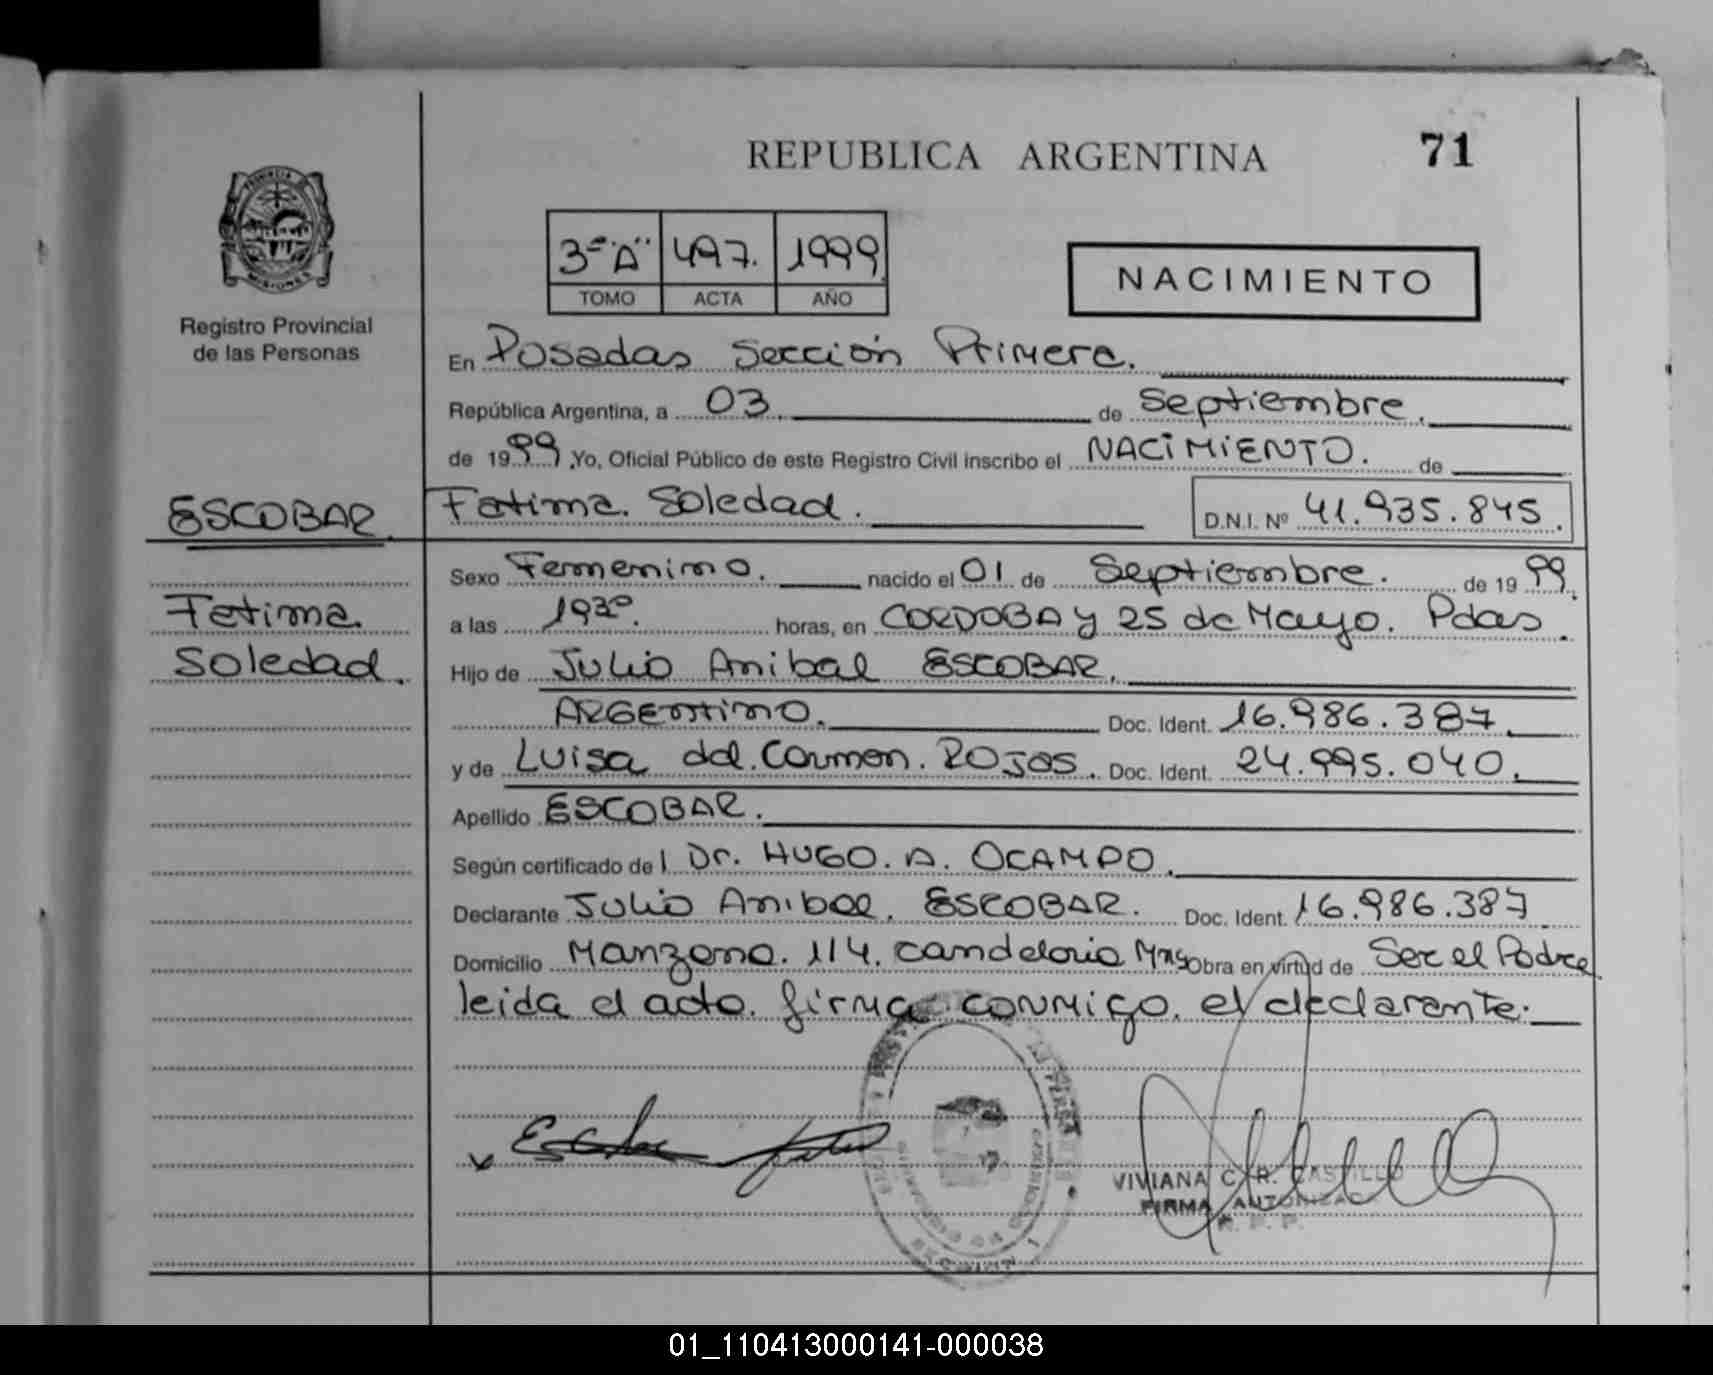 REPUBLICA ARGENTINA 71
PROVINCIA DE
MISIONES
Registro Provincial
de las Personas
3º "A" 497. 1999
TOMO ACTA AÑO
NACIMIENTO
En Posadas Sección Primera.
República Argentina, a 03 de Septiembre.
de 1999 ,Yo, Oficial Público de este Registro Civil inscribo el NACIMIENTO. de
ESCOBAR. Fatima Soledad. D.N.I. Nº 41.935.845.
Sexo Femenino. nacido el 01 de Septiembre. de 1999.
Fatima a las 19³⁰. horas, en CORDOBA y 25 de Mayo. Pdas.
Soledad. Hijo de Julio Anibal ESCOBAR.
ARGENTINO. Doc. Ident. 16.986.387.
y de Luisa del Carmen ROJAS. Doc. Ident. 24.995.040.
Apellido ESCOBAR.
Según certificado del Dr. HUGO. A. OCAMPO.
Declarante Julio Anibal. ESCOBAR. Doc. Ident. 16.986.387
Domicilio Manzana. 114. Candelaria Mns Obra en virtud de Ser el Padre
leida el acta. firma conmigo. el declarante.
VIVIANA C. R. CASTILLO
FIRMA AUTORIZADA
R. P. P.
01_110413000141-000038